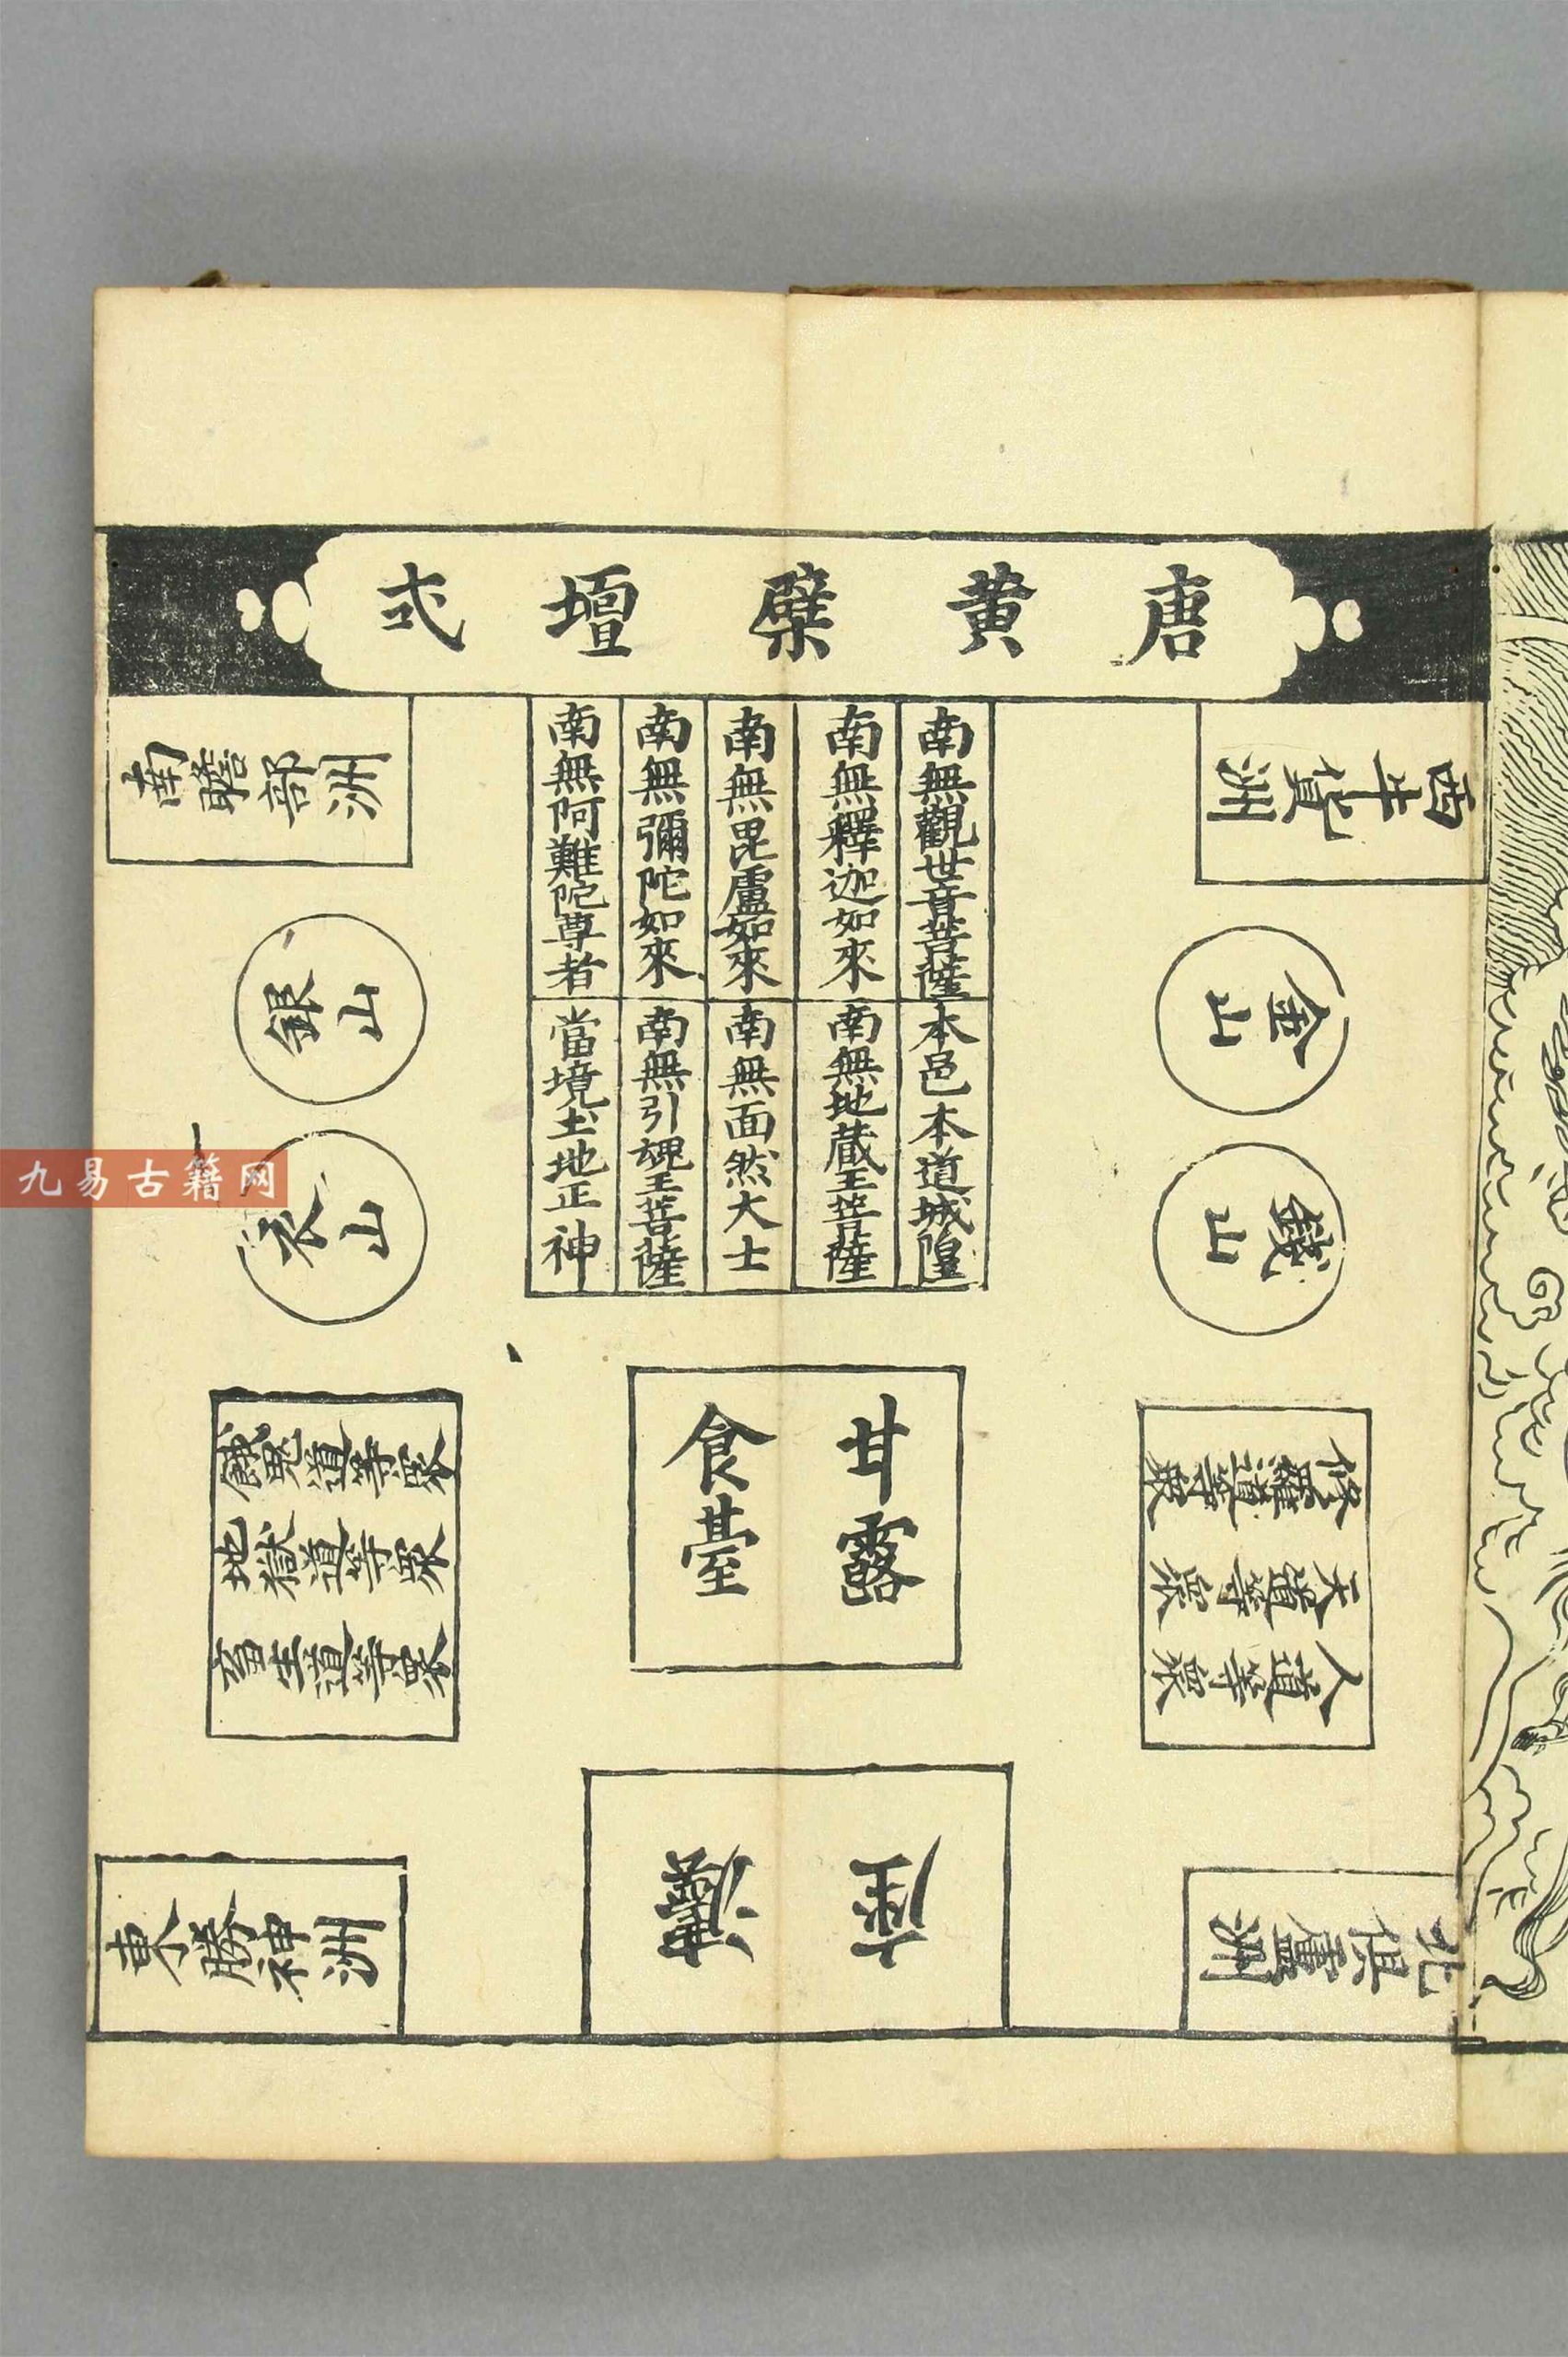 唐黄檗壇式
西牛貨洲
金山
鐵山
修羅道等衆
天道等衆
人道等衆
北俱盧洲
南無觀世音菩薩
本邑本道城隍
南無釋迦如來
南無地蔵王菩薩
南無毘盧如來
南無面然大士
南無彌陀如來
南無引魂王菩薩
南無阿難陀尊者
當境土地正神
甘露
食臺
座
南贍部洲
銀山
衣山
餓鬼道等衆
地獄道等衆
畜生道等衆
東勝神洲
九易古籍网